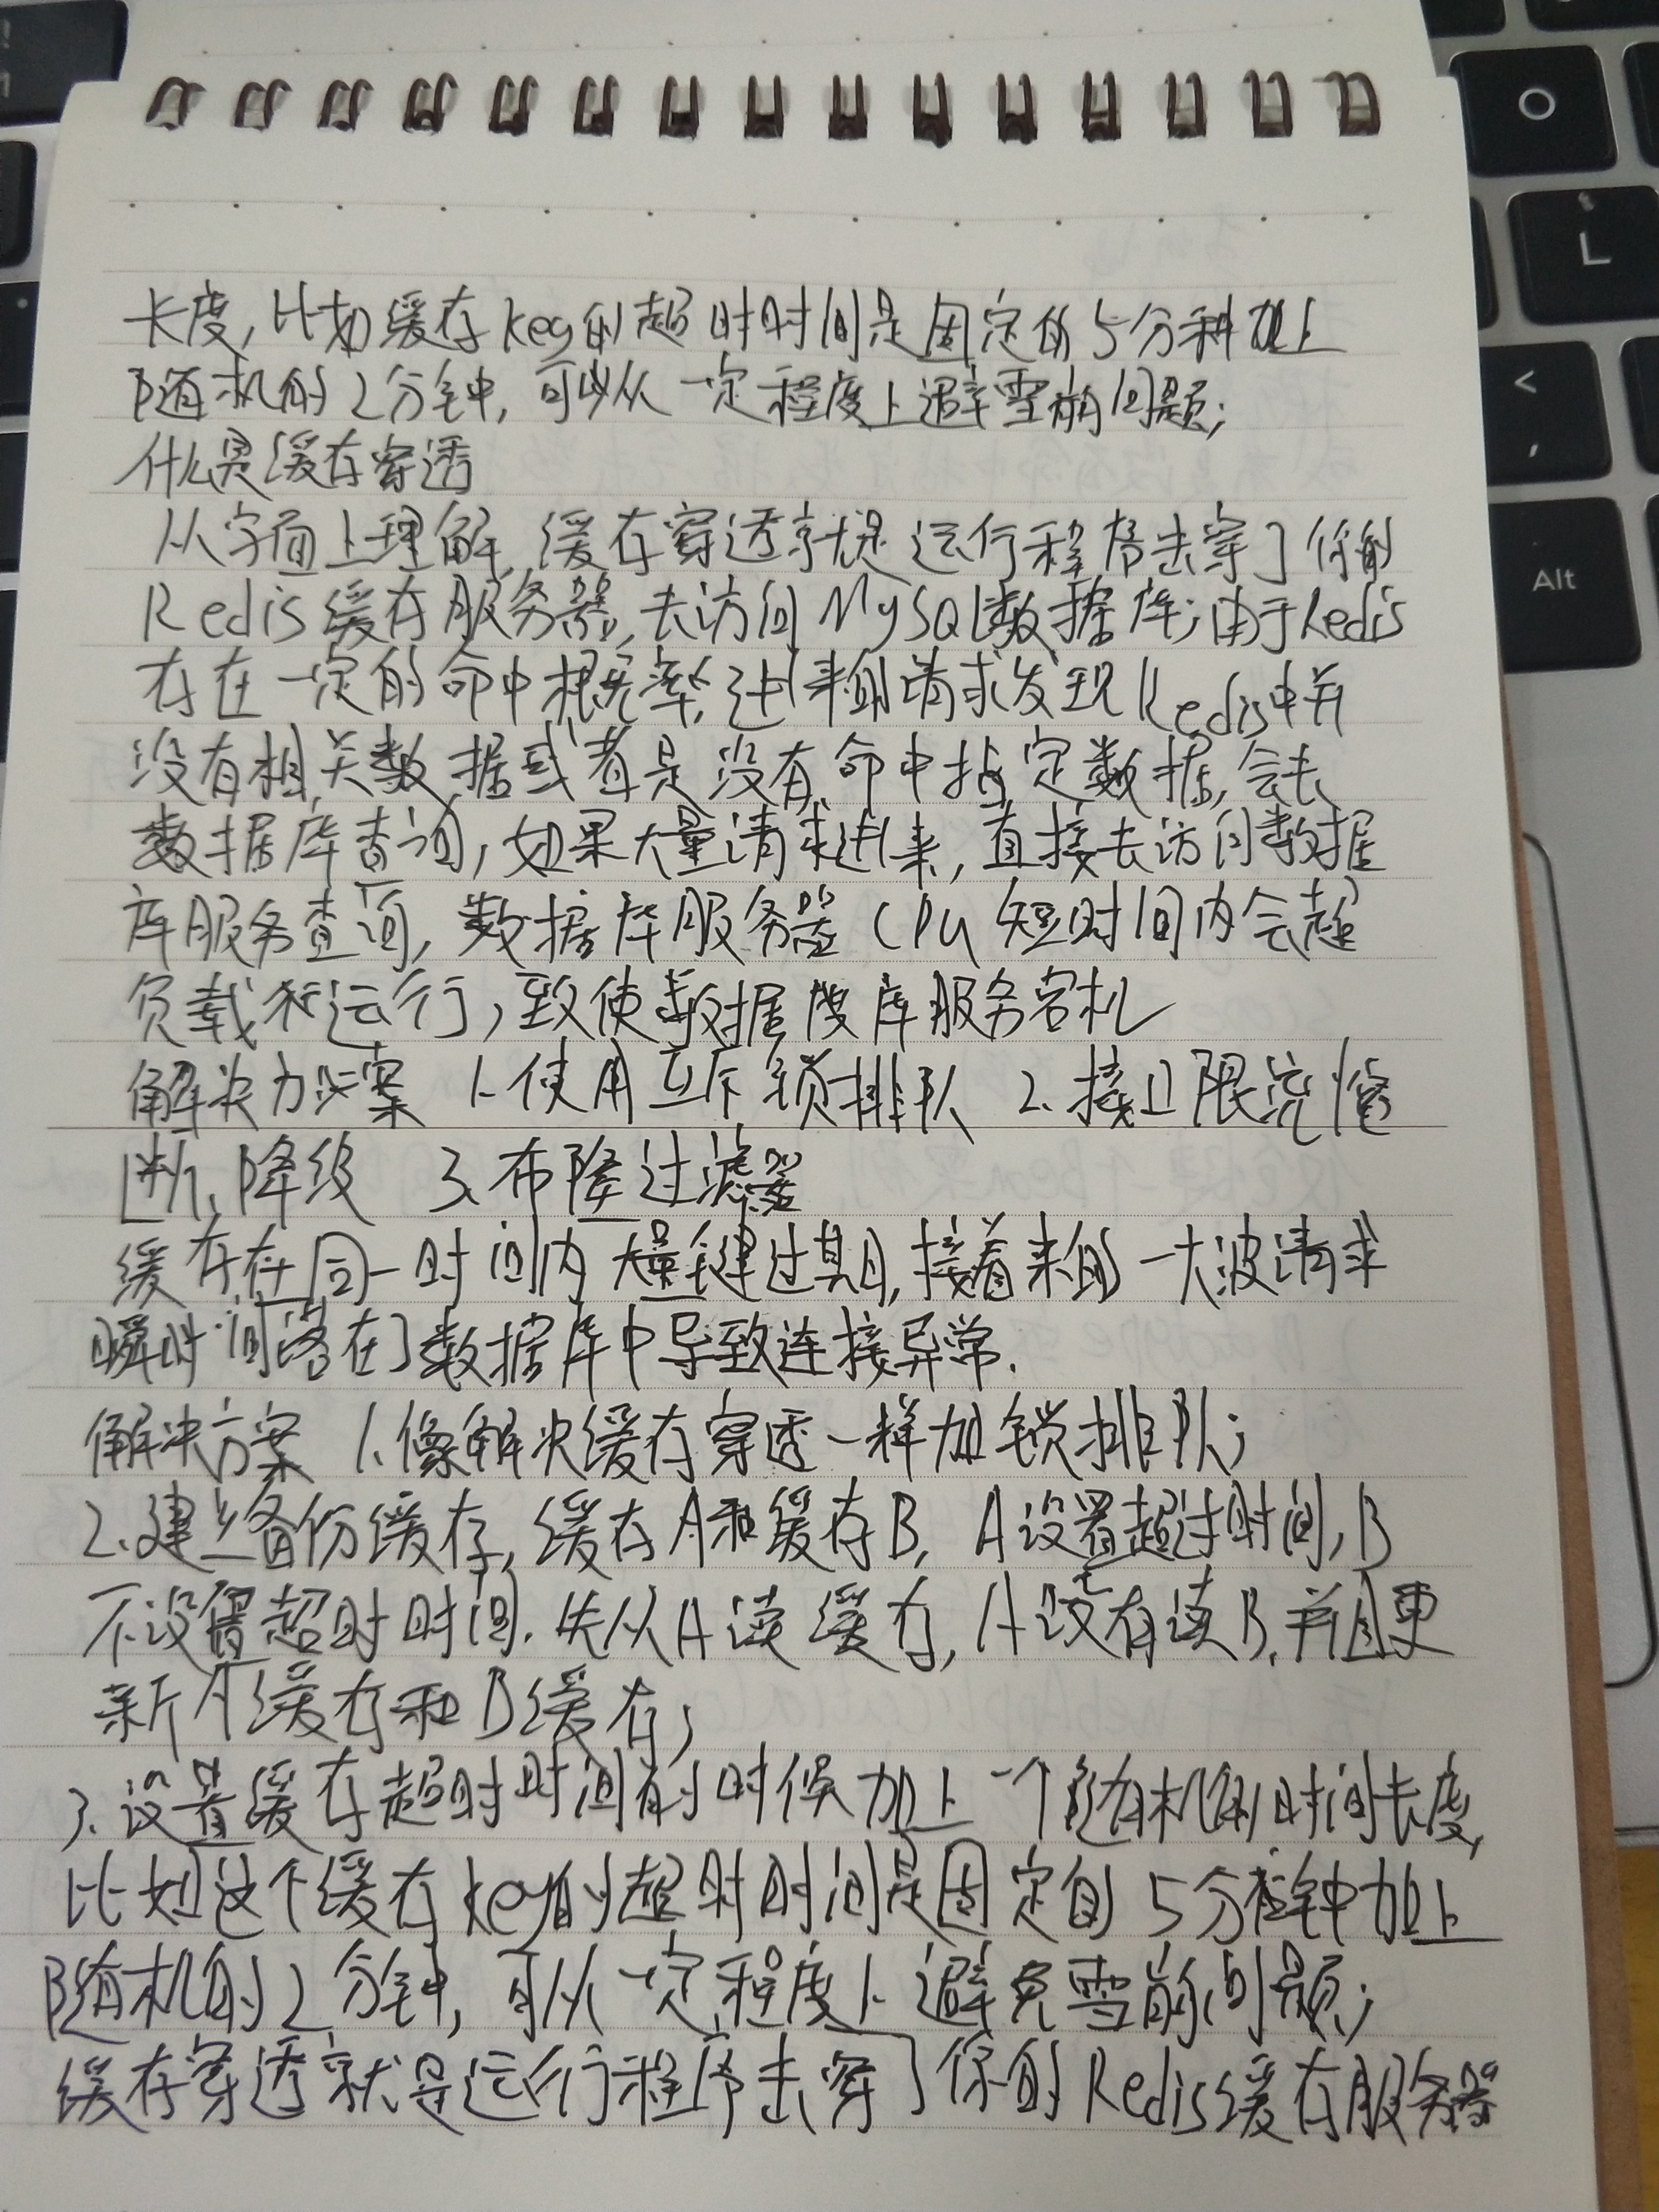 长度，比如缓存key的超时时间是固定的5分种加上
随机的2分钟，可以从一定程度上避雪崩问题；
什么是缓存穿透
从字面上理解，缓存穿透就是运行程序击穿了你的
Redis缓存服务器，去访问MySQL数据库；由于Redis
存在一定的命中概率，进来的请求发现Redis中并
没有相关数据或者是没有命中指定数据，会去
数据库查询，如果大量请求进来，直接去访问数据
库服务查询，数据库服务器CPU短时间内会超
负载运行，致使数据库服务宕机
解决方案 1.使用 锁排队 2.接口限流熔
断、降级 3.布隆过滤器
缓存在同一时间内大量键过期，接着来的一大波请求
瞬时间落在了数据库中导致连接异常.
解决方案 1.像解决缓存穿透一样加锁排队；
2.建立备份缓存，缓存A和缓存B，A设置超过时间，B
不设置超时时间.先从A读缓存，A没有读B，并且更
新A缓存和B缓存；
3.设置缓存超时时间的时候加上一个随机的时间长度，
比如这个缓存key的超时时间是固定的5分钟加上
随机的2分钟，可从一定程度上避免雪崩问题；
缓存穿透就是运行程序击穿了你的Redis缓存服务器
O
L
<
,
Alt